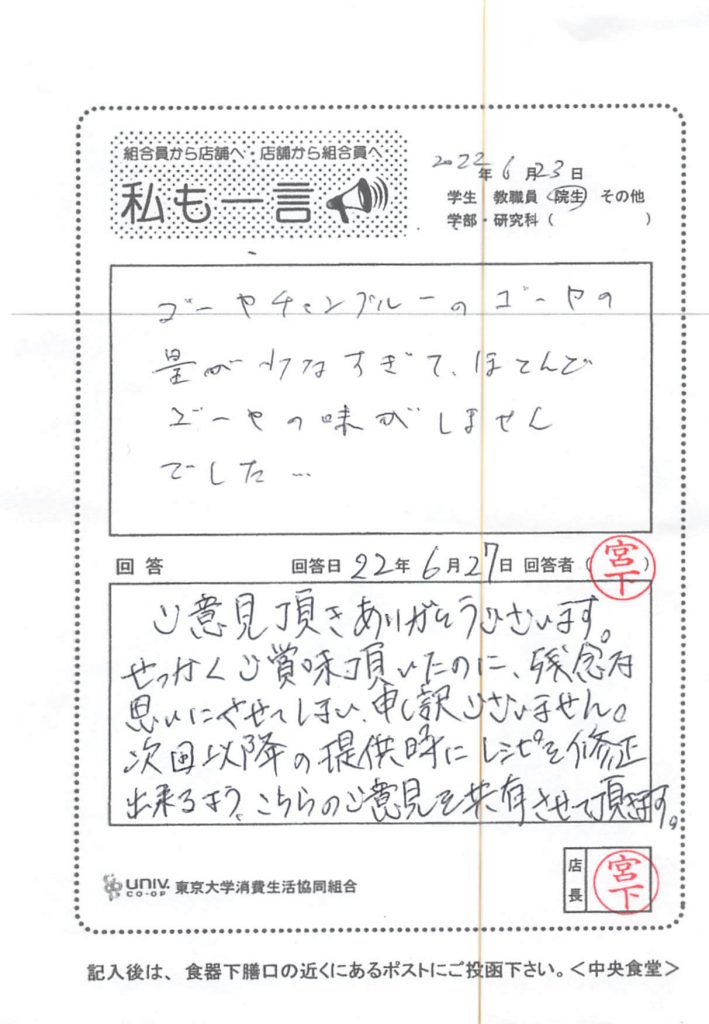 組合員から店舗へ・店舗から組合員へ
私も一言
2022年6月23日
学生 教職員 院生 その他
学部・研究科( )
ゴーヤチャンプルーのゴーヤの
量が少なすぎて、ほとんど
ゴーヤの味がしません
でした…
回答 回答日 22年6月27日 回答者(宮下)
ご意見頂きありがとうございます。
せっかくご賞味頂いたのに、残念な
思いにさせてしまい、申し訳ございません。
次回以降の提供時にレシピを修正
出来るよう、こちらのご意見を共有させて頂きます。
UNIV. CO-OP 東京大学消費生活協同組合
店長 宮下
記入後は、食器下膳口の近くにあるポストにご投函下さい。<中央食堂>